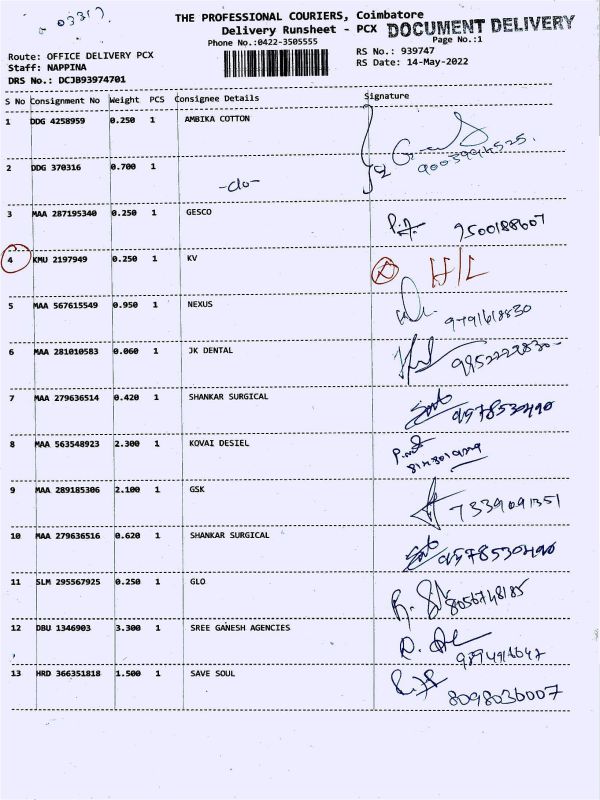 THE PROFESSIONAL COURIERS, Coimbatore
Delivery Runsheet - PCX DOCUMENT DELIVERY
Phone No.:0422-3505555 Page No.:1
Route: OFFICE DELIVERY PCX RS No.: 939747
Staff: NAPPINA RS Date: 14-May-2022
DRS No.: DCJB93974701
S No Consignment No Weight PCS Consignee Details Signature
1 DDG 4258959 0.250 1 AMBIKA COTTON
2 DDG 370316 0.700 1
-do-
3 MAA 287195340 0.250 1 GESCO
9500188607
4 KMU 2197949 0.250 1 KV
5 MAA 567615549 0.950 1 NEXUS
9791618830
6 MAA 281010583 0.060 1 JK DENTAL
7 MAA 279636514 0.420 1 SHANKAR SURGICAL
9578530490
8 MAA 563548923 2.300 1 KOVAI DESIEL
9 MAA 289185306 2.100 1 GSK
7339091351
10 MAA 279636516 0.620 1 SHANKAR SURGICAL
9578530490
11 SLM 295567925 0.250 1 GLO
8056748185
12 DBU 1346903 3.300 1 SREE GANESH AGENCIES
13 HRD 366351818 1.500 1 SAVE SOUL
8098030007